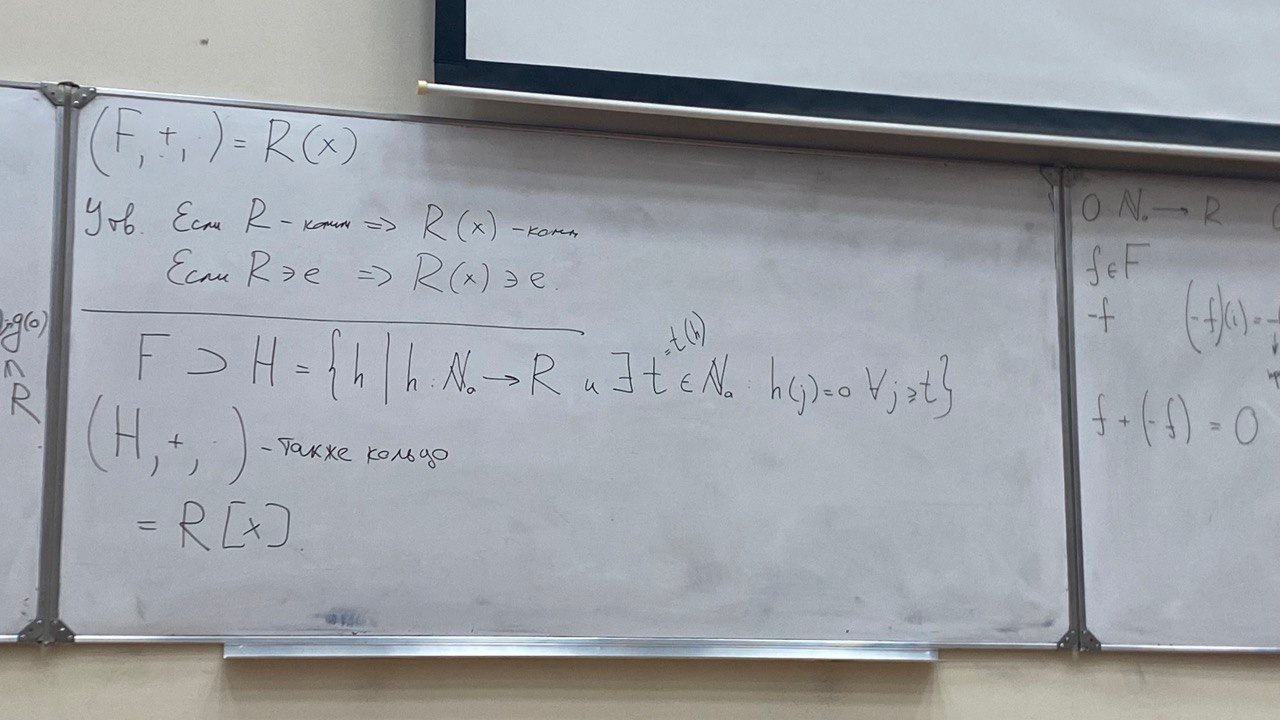 (F, +, ·) = R(x)
Утв. Если R - комм => R(x) - комм
Если R∋e => R(x)∋e.
F ⊃ H = {h | h: N₀ → R и ∃ t = t(h) ∈ N₀ : h(j)=0 ∀j⩾t}
(H, +, ·) - также кольцо
= R[x].
g(0)
∩
R
0 N₀ → R
f ∈ F
-f (-f)(i) = -
f + (-f) = 0